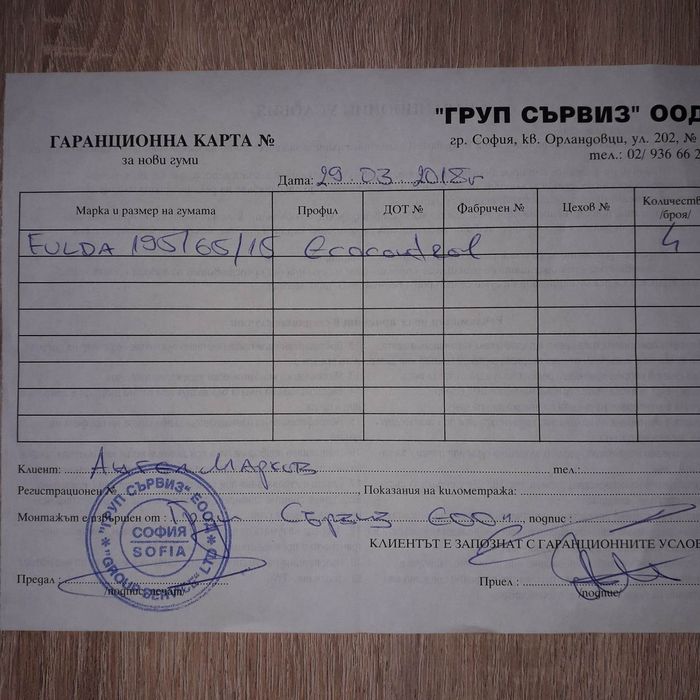 "ГРУП СЪРВИЗ" ООД
ГАРАНЦИОННА КАРТА №
гр. София, кв. Орландовци, ул. 202, №
за нови гуми
тел.: 02/ 936 66 2
Дата: 29.03 2018г
Марка и размер на гумата Профил ДОТ № Фабричен № Цехов № Количеств
/броя/
FULDA 195/65/15 Ecocontrol 4
Клиент: Ангел Марков тел.:
Регистрационен № , Показания на километража:
Монтажът е извършен от : Груп Сървиз ЕООД , подпис :
КЛИЕНТЪТ Е ЗАПОЗНАТ С ГАРАНЦИОННИТЕ УСЛОВ
Предал : Приел :
/подпис печат/ /подпис/
"ГРУП СЪРВИЗ" ЕООД
СОФИЯ
SOFIA
"GROUP SERVICE" LTD